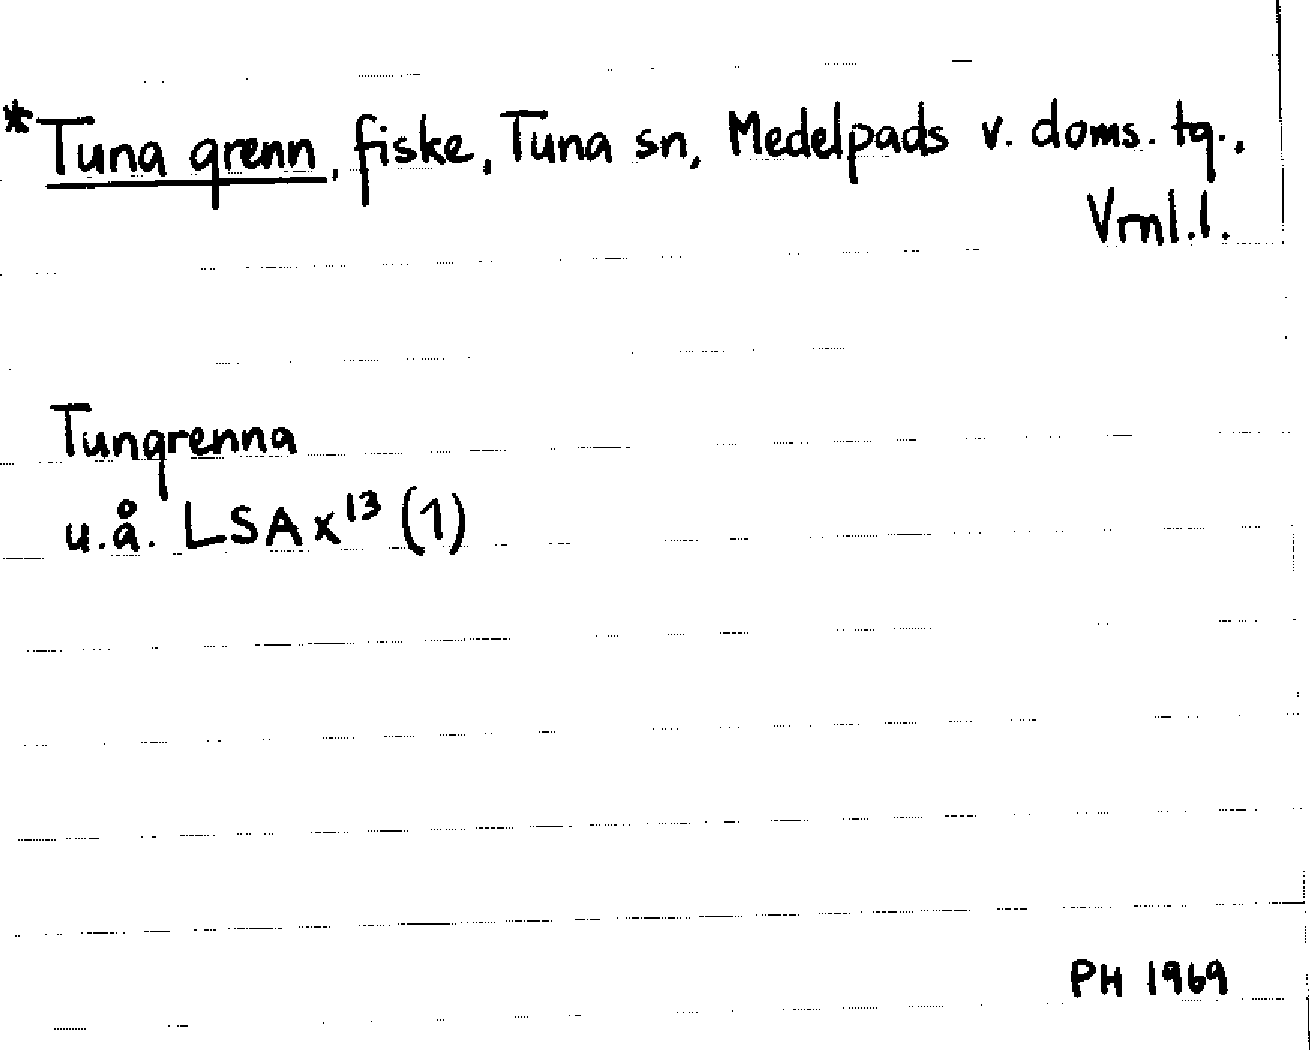 *Tuna grenn, fiske, Tuna sn, Medelpads v. doms. tg.,
Vrnl.l.
Tungrenna
u.å. LSA x¹³ (1)
PH 1969